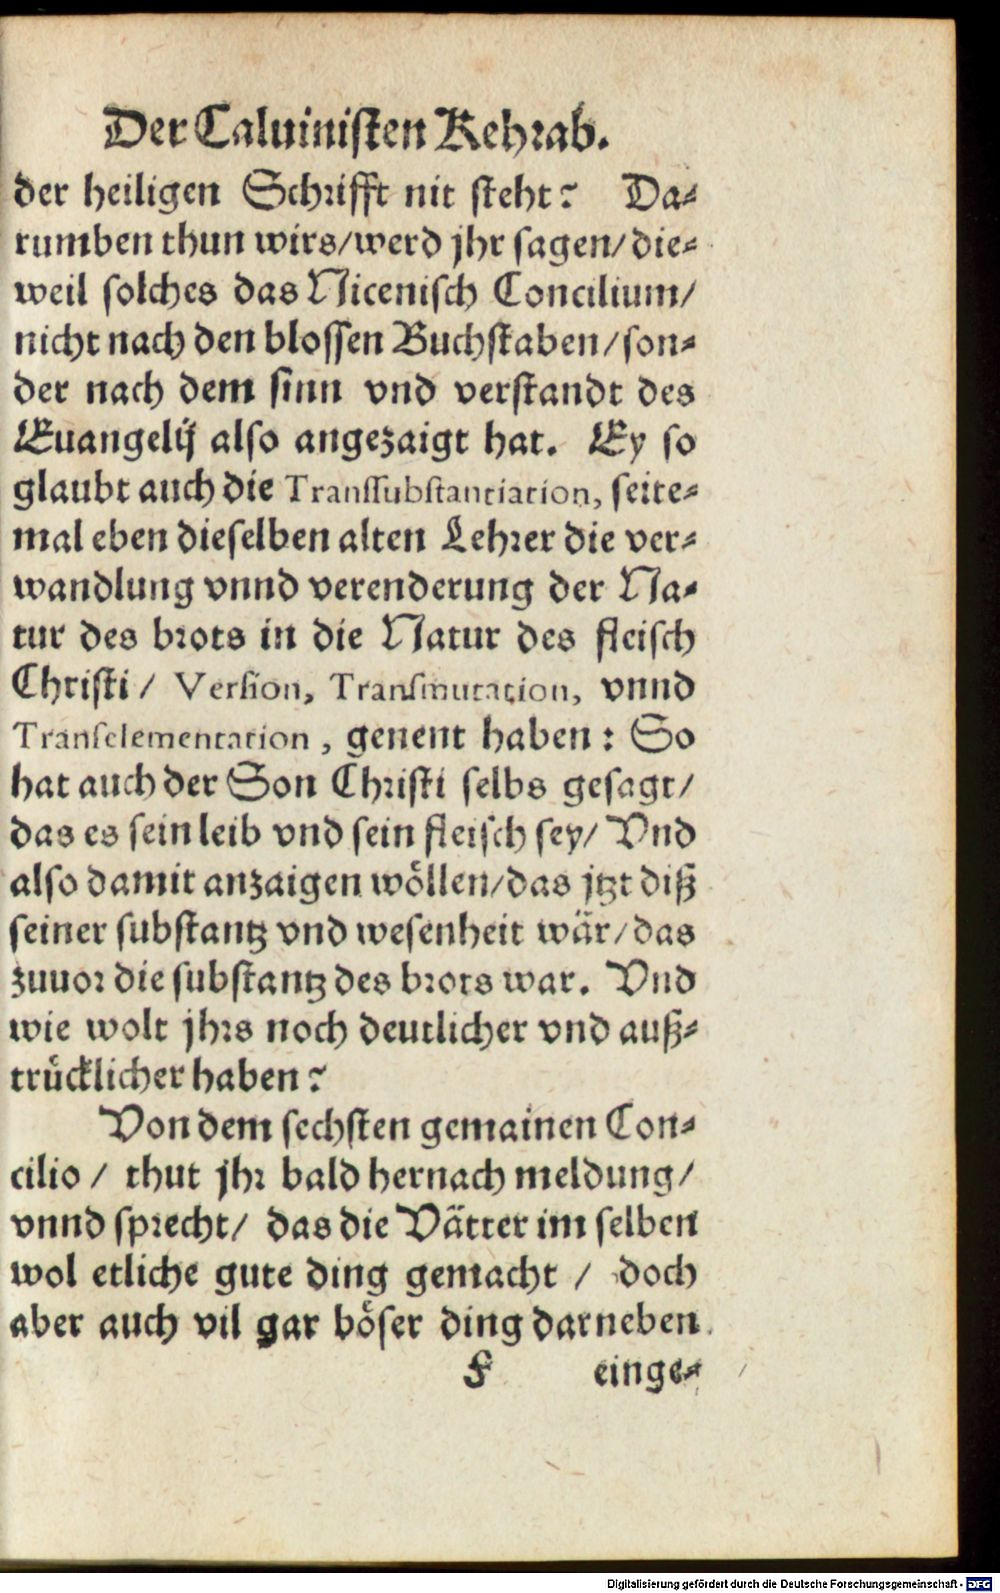 Der Caluinisten Kehrab.
der heiligen Schrifft nit steht? Da⸗
rumben thun wirs/werd jhr sagen/die⸗
weil solches das Nicenisch Concilium/
nicht nach den blossen Buchstaben/son⸗
der nach dem sinn vnd verstandt des
Euangelij also angezaigt hat. Ey so
glaubt auch die Transsubstantiation, seite⸗
mal eben dieselben alten Lehrer die ver⸗
wandlung vnnd verenderung der Na⸗
tur des brots in die Natur des fleisch
Christi/ Version, Transmutation, vnnd
Transelementation, genent haben: So
hat auch der Son Christi selbs gesagt/
das es sein leib vnd sein fleisch sey/ Vnd
also damit anzaigen wöllen/das jtzt diß
seiner substantz vnd wesenheit wär/das
zuuor die substantz des brots war. Vnd
wie wolt jhrs noch deutlicher vnd auß⸗
trücklicher haben?
Von dem sechsten gemainen Con⸗
cilio/ thut jhr bald hernach meldung/
vnnd sprecht/ das die Vätter im selben
wol etliche gute ding gemacht / doch
aber auch vil gar böser ding darneben
F einge⸗
Digitalisierung gefördert durch die Deutsche Forschungsgemeinschaft - DFG